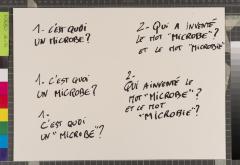 1- C'EST QUOI
UN MICROBE ?
2- QUI A INVENTÉ
LE MOT "MICROBE" ?
ET LE MOT "MICROBIE"
1- C'EST QUOI
UN MICROBE ?
2-
QUI A INVENTÉ LE
MOT "MICROBE" ?
ET LE MOT
"MICROBIE" ?
1-
C'EST QUOI
UN "MICROBE" ?